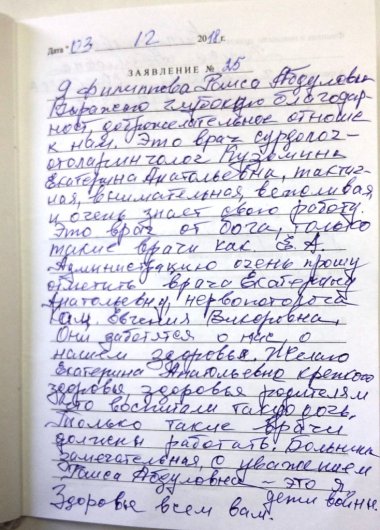 Дата "03 12 2018 г.
ЗАЯВЛЕНИЕ № 25
Я филиппова Раиса Абдуловна
Выражаю глубокую благодар-
ность, доброжелательное отноше
к нам. Это врач сурдолог-
отоларинголог Кузьмина
Екатерина Анатольевна, тактич-
ная, внимательная вежливая
и очень знает свою работу.
Это врач от бога, только
такие врачи как Е. А.
Администрацию очень прошу
отметить врача Екатерину
Анатольевну,
Евгения Викоровна,
Они заботятся о нас, о
нашем здоровье. Желаю
Екатерина Анатольевно крепкого
здоровье, здоровья родителям
что воспитали такую дочь.
Только такие врачи
должны работать. Больница
замечательная, с уважением
Раиса Абдуловна – это я
дети войны.
Здоровье всем вам.